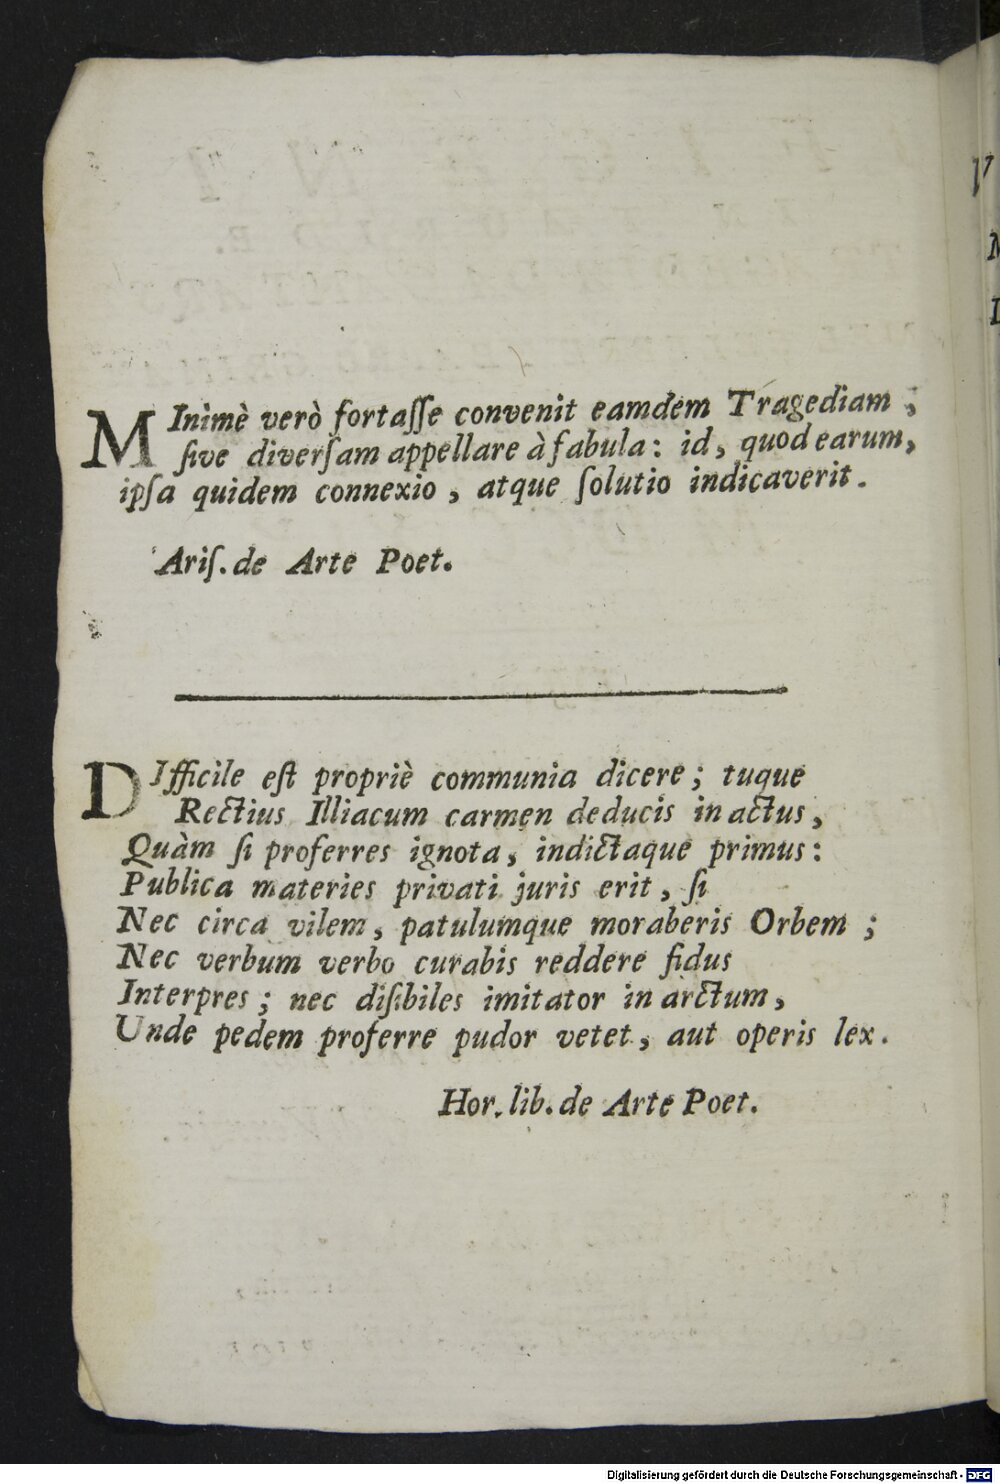 MInimè verò fortaſſe convenit eamdem Tragediam ;
ſive diverſam appellare à fabula: id, quod earum,
ipſa quidem connexio, atque ſolutio indicaverit.
Ariſ. de Arte Poet.
DIfficile eſt propriè communia dicere; tuque
Rectius Illiacum carmen deducis in actus,
Quàm ſi proferres ignota, indictaque primus:
Publica materies privati juris erit, ſi
Nec circa vilem, patulumque moraberis Orbem ;
Nec verbum verbo curabis reddere fidus
Interpres; nec diſibiles imitator in arctum,
Unde pedem proferre pudor vetet, aut operis lex.
Hor. lib. de Arte Poet.
Digitalisierung gefördert durch die Deutsche Forschungsgemeinschaft - DFG